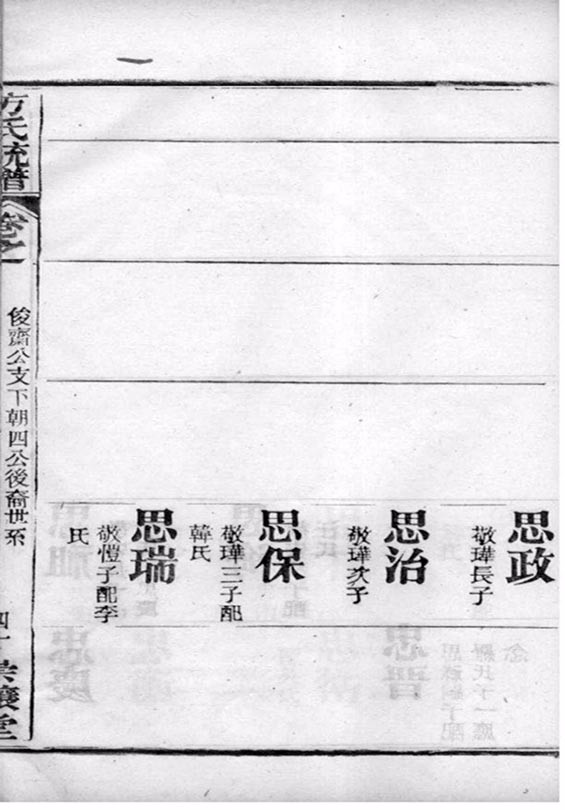 思政
敬瑋長子
思治
敬瑋次子
思保
敬瑋三子配
韓氏
思瑞
敬愷子配李
氏
方氏統譜
卷之一
俊齋公支下朝四公後裔世系